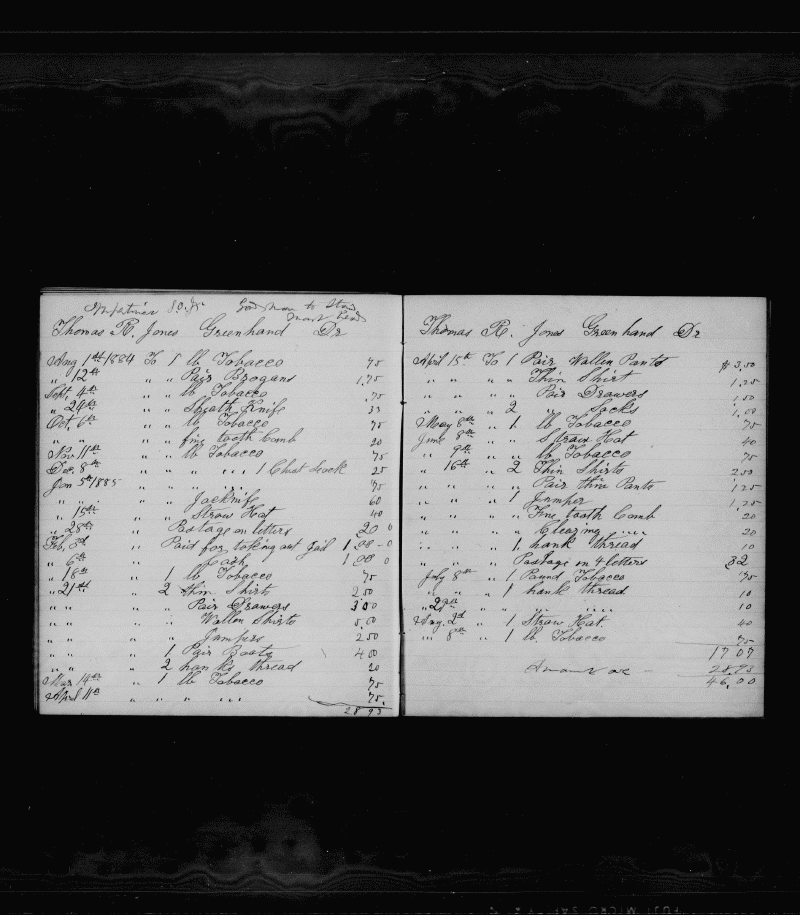 Good Man to
Thomas R. Jones Greenhand Dr
Aug 1st 1884 To 1 lb Tobacco 75
" 12th " " Pair Brogans 1,75
Sept, 4th " " lb Tobacco ,75
" 24th " " Sheath Knife 33
Oct 6th " " lb Tobacco 75
" " " " fine tooth Comb 20
Nov 11th " " lb Tobacco 75
Dec, 8th " " " " " 1 Chat Sock 25
Jan 5th 1885 " " " " " 75
" " " " Jacknife 60
" 15th " " Straw Hat 40
" 28th " Postage on letters 20 0
Feb, 3d " Paid for taking out Jail 1 00 - 0
" 6th " " Cash 1 00 0
" 18th " 1 lb Tobacco 75
" 21st " 2 thin Shirts 2 50
" " " " Pair Drawers 3 00
" " " " Wallen Shirts 5,00
" " " " Jumpers 2 50
" " " 1 Pair Boots 4 00
" " " 2 hanks thread 20
Mar 14th " 1 lb Tobacco 75
April 11th " " " " " 75,
28 93
Thomas R. Jones Greenhand Dr
April 15th To 1 Pair Wallen Pants $ 3,50
" " " " Thin Shirt 1,25
" " " " Pair Drawers 1,50
" " " 2 " Socks 1,00
May 8th " 1 lb Tobacco 75
June 8th " " Straw Hat 40
" 9th " " lb Tobacco 75
" 16th " 2 Thin Shirts 2 50
" " " " Pair thin Pants 1 25
" " " 1 Jumper 1,25
" " " " Fine tooth Comb 20
" " " " Clearing " " 20
" " " 1 hank thread 10
" " " Postage on 4 letters 32
July 8th " 1 Pound Tobacco 75
" " " 1 hank thread 10
" 29th " " " " 10
Aug, 2d " 1 Straw Hat 40
" 8th " 1 lb, Tobacco 75
17 07
28,93
46,00